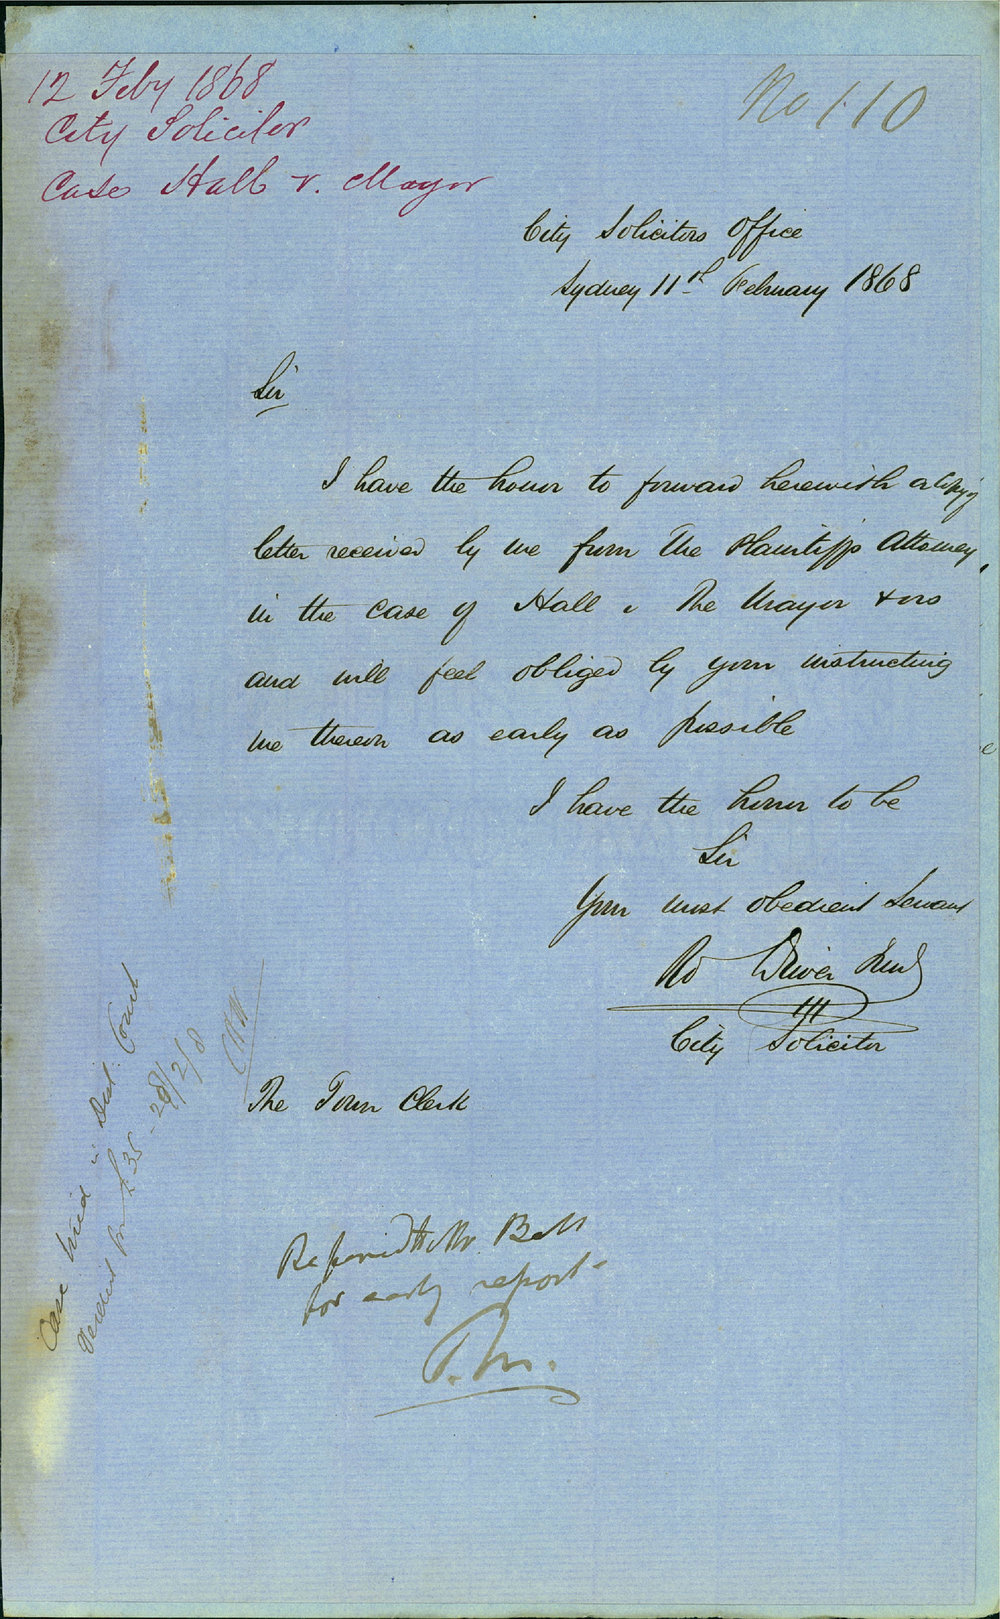 12 Feby 1868
City Solicitor
Case Hall v. Mayor
No 110
City Solicitors Office
Sydney 11th February 1868
Sir
I have the honor to forward herewith a copy of
letter received by me from the Plaintiffs Attorney,
in the case of Hall v The Mayor & ors
and will feel obliged by your instructing
me thereon as early as possible
I have the honor to be
Sir
Your most obedient Servant
Rd Driver Junr
City Solicitor
The Town Clerk
Case tried in Dist. Court
Verdict for £35 - 28/2/8
Referred to Mr. Bell
for early report